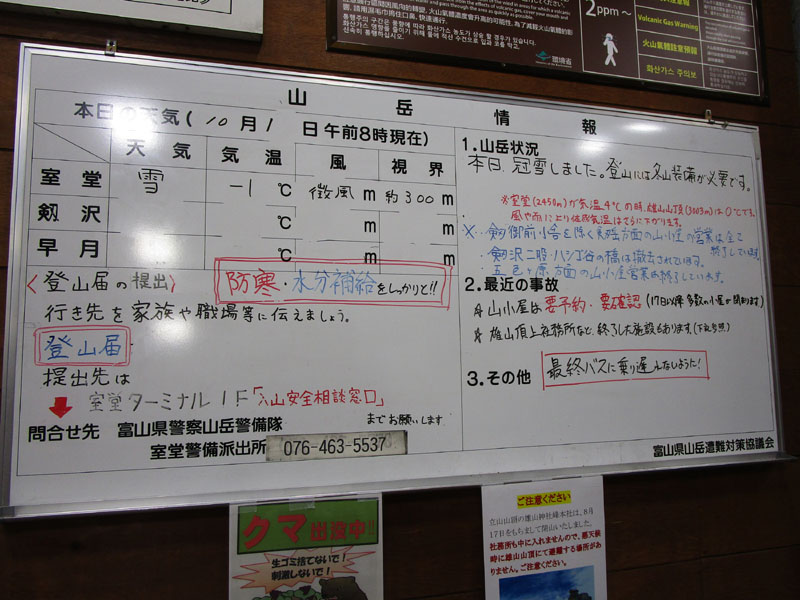 山岳情報
本日の天気(10月1日午前8時現在)
天気 気温 風 視界
室堂 雪 -1℃ 微風m 約300m
剱沢 ℃ m m
早月 ℃ m m
〈登山届の提出〉
防寒・水分補給をしっかりと!!
行き先を家族や職場等に伝えましょう。
登山届
提出先は
室堂ターミナル1F「入山安全相談窓口」
までお願いします
問合せ先 富山県警察山岳警備隊
室堂警備派出所 076-463-5537
1.山岳状況
本日、冠雪しました。登山には冬山装備が必要です。
※室堂(2450m)が気温4℃の時、雄山山頂(3003m)は0℃です。
風や雨により体感気温はさらに下がります。
剱御前小舎を除く
方面の山小屋の営業は全て
終了しています。
剱沢二股・ハシゴ谷の橋は撤去されています。
五色ヶ原方面の山小屋営業は終了しています。
2.最近の事故
山小屋は要予約・要確認(17日以降多数の小屋が閉まります)
雄山頂上社務所など、終了した施設もあります。(下記参照)
3.その他
最終バスに乗り遅れないように!
富山県山岳遭難対策協議会
環境省
2ppm~
Volcanic Gas Warning
火山氣體註意預報
화산가스 주의보
クマ出没中!!
生ゴミ捨てないで!
刺激しないで!
ご注意ください
立山山頂の雄山神社峰本社は、8月
17日をもちまして閉山いたしました。
社務所も中に入れませんので、悪天候
時に雄山山頂にて避難する場所があ
りません。ご注意ください。